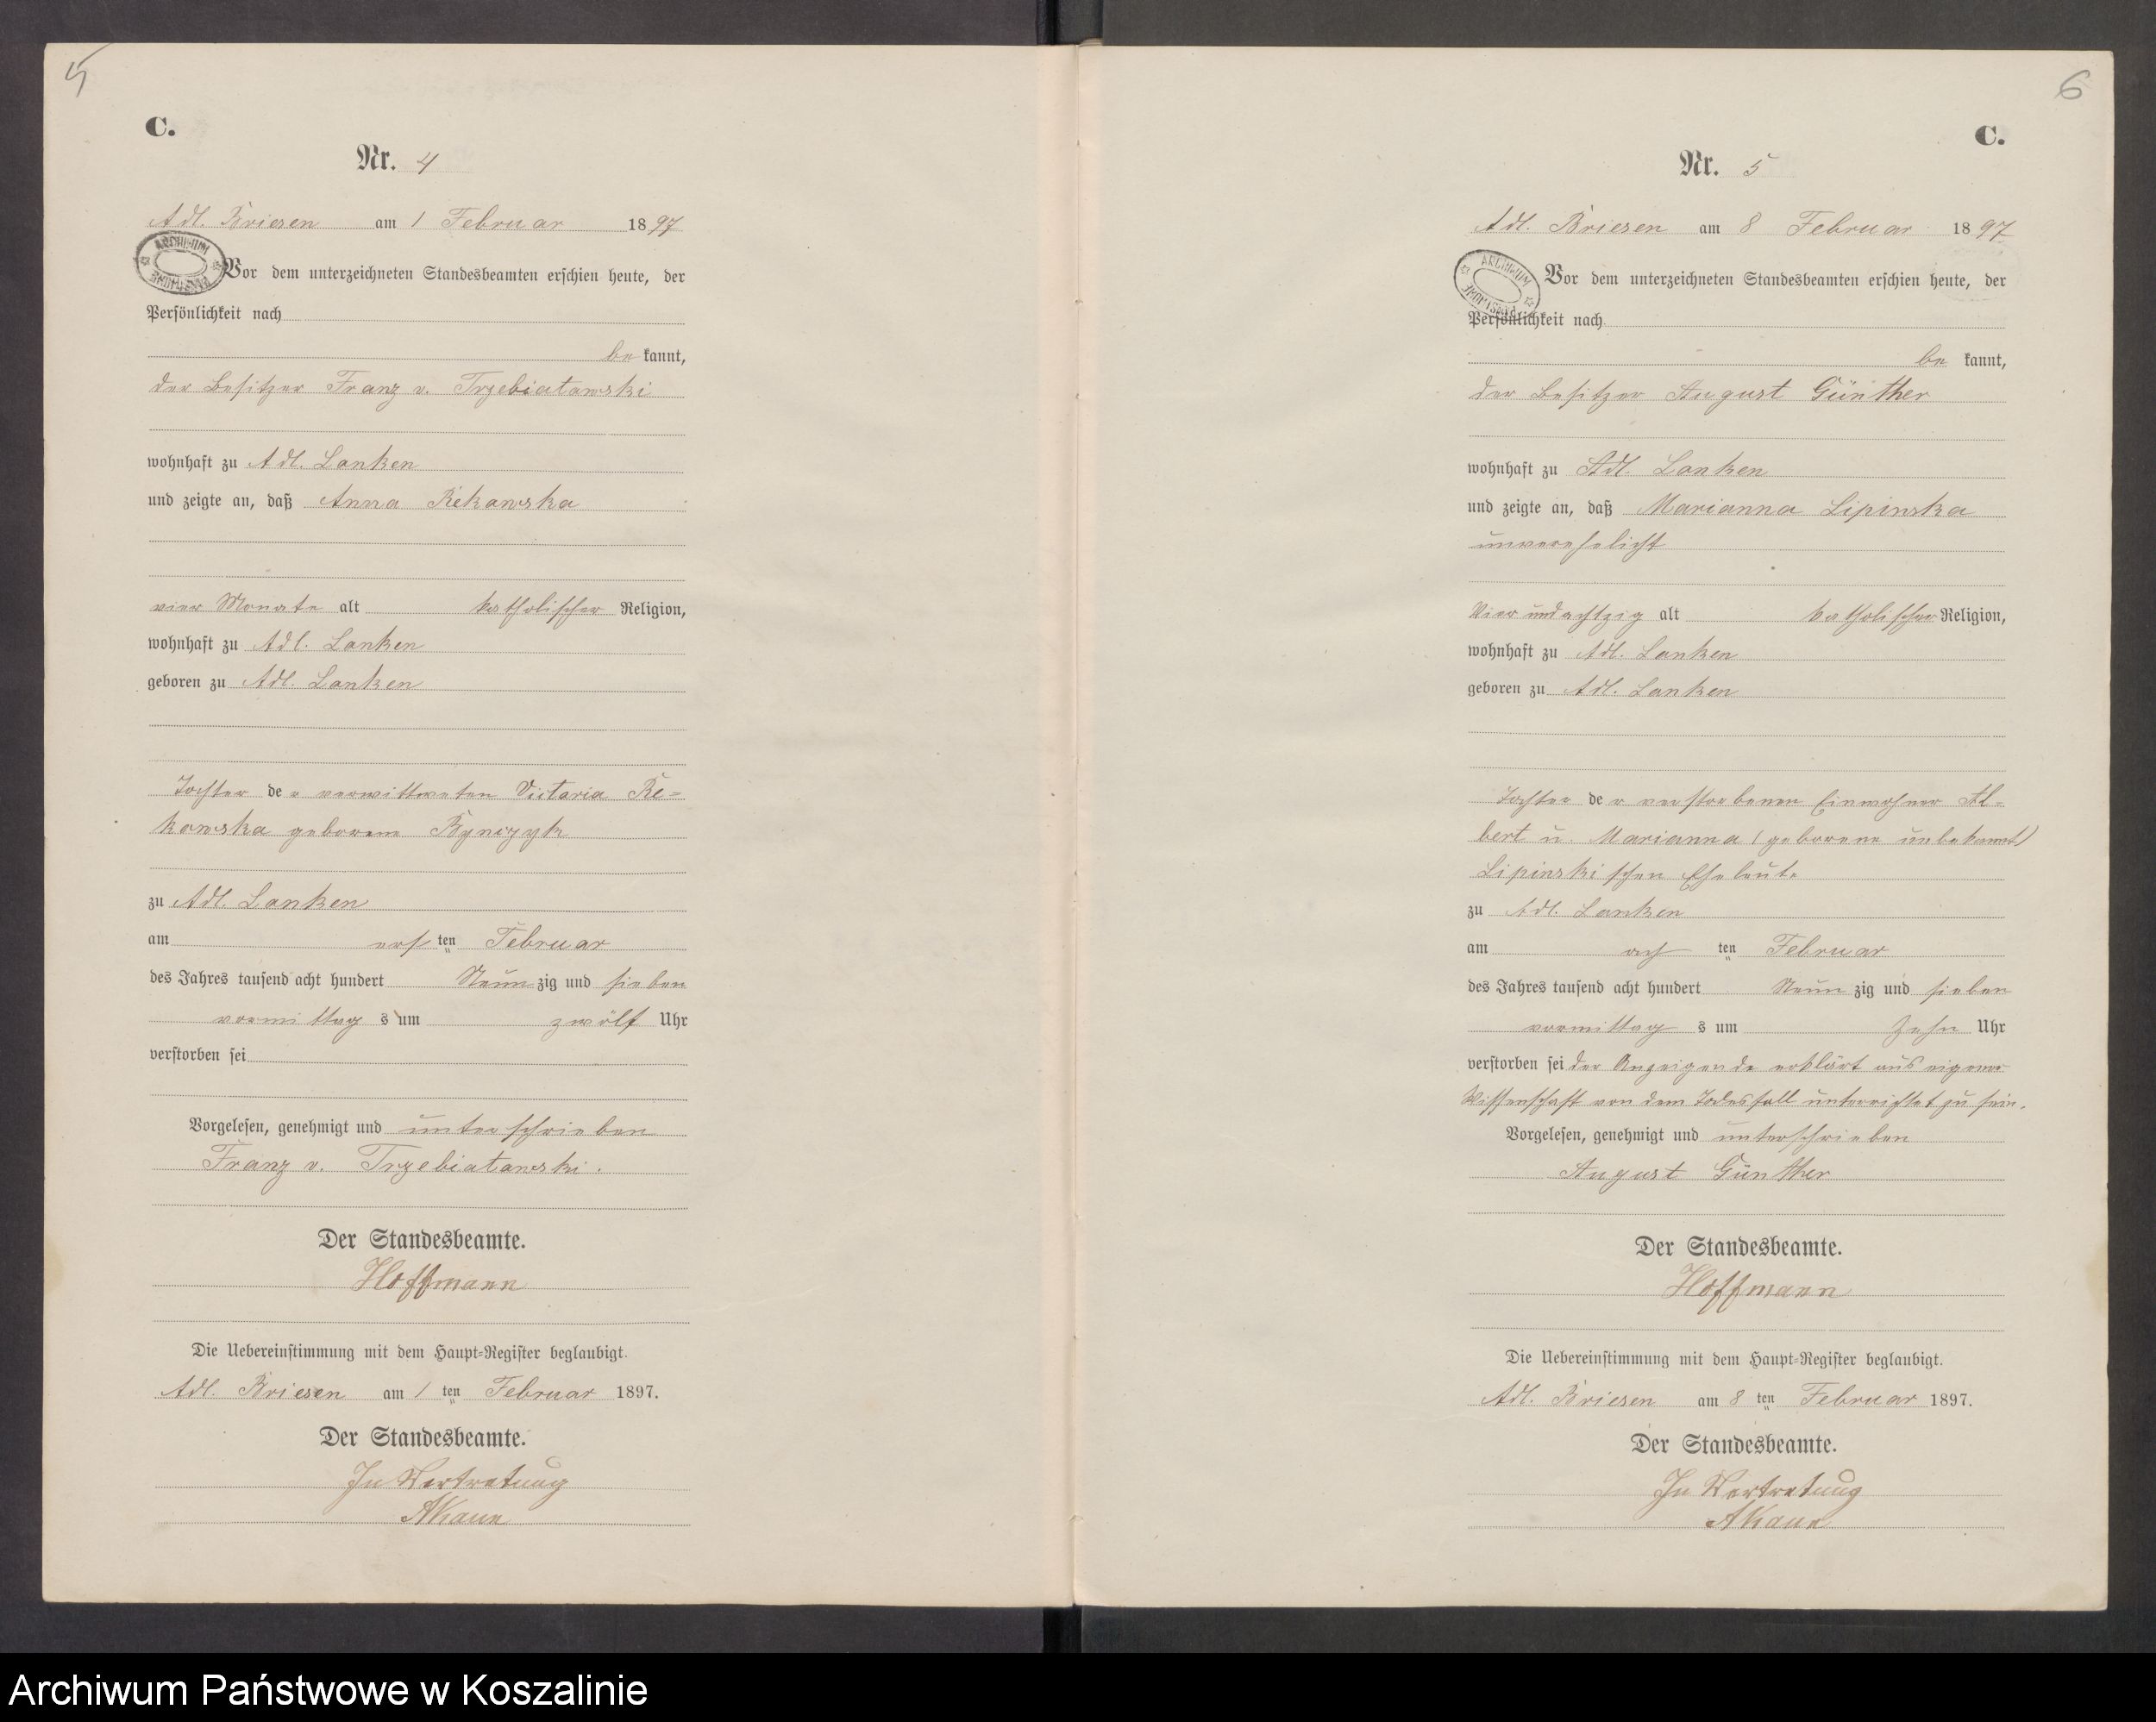 5
C.
Nr. 4
Adl. Briesen am 1 Februar 1897
ARCHIWUM
PAŃSTWOWE
Vor dem unterzeichneten Standesbeamten erschien heute, der
Persönlichkeit nach
be kannt,
der Besitzer Franz v. Trzebiatowski
wohnhaft zu Adl. Lanken
und zeigte an, daß Anna Rekowska
vier Monate alt katholischer Religion,
wohnhaft zu Adl. Lanken
geboren zu Adl. Lanken
Tochter der verwittweten Victoria Re=
kowska geborene
zu Adl. Lanken
am ersten Februar
des Jahres tausend acht hundert Neunzig und sieben
vormittags um zwölf Uhr
verstorben sei
Vorgelesen, genehmigt und unterschrieben
Franz v. Trzebiatowski.
Der Standesbeamte.
Hoffmann
Die Uebereinstimmung mit dem Haupt=Register beglaubigt.
Adl. Briesen am 1ten Februar 1897.
Der Standesbeamte.
In Vertretung
6
C.
Nr. 5
Adl. Briesen am 8 Februar 1897
ARCHIWUM
PAŃSTWOWE
Vor dem unterzeichneten Standesbeamten erschien heute, der
Persönlichkeit nach
be kannt,
der Besitzer August Günther
wohnhaft zu Adl. Lanken
und zeigte an, daß Marianna Lipinska
unverehelicht
Vierundachtzig alt katholischer Religion,
wohnhaft zu Adl. Lanken
geboren zu Adl. Lanken
Tochter der verstorbenen Einwohner Al=
bert u. Marianna (geborene unbekannt)
Lipinskischen Eheleute
zu Adl. Lanken
am achten Februar
des Jahres tausend acht hundert Neunzig und sieben
vormittags um zehn Uhr
verstorben sei der Anzeigende erklärt aus eigener
Wissenschaft von dem Todesfall unterrichtet zu sein.
Vorgelesen, genehmigt und unterschrieben
August Günther
Der Standesbeamte.
Hoffmann
Die Uebereinstimmung mit dem Haupt=Register beglaubigt.
Adl. Briesen am 8ten Februar 1897.
Der Standesbeamte.
In Vertretung
Archiwum Państwowe w Koszalinie